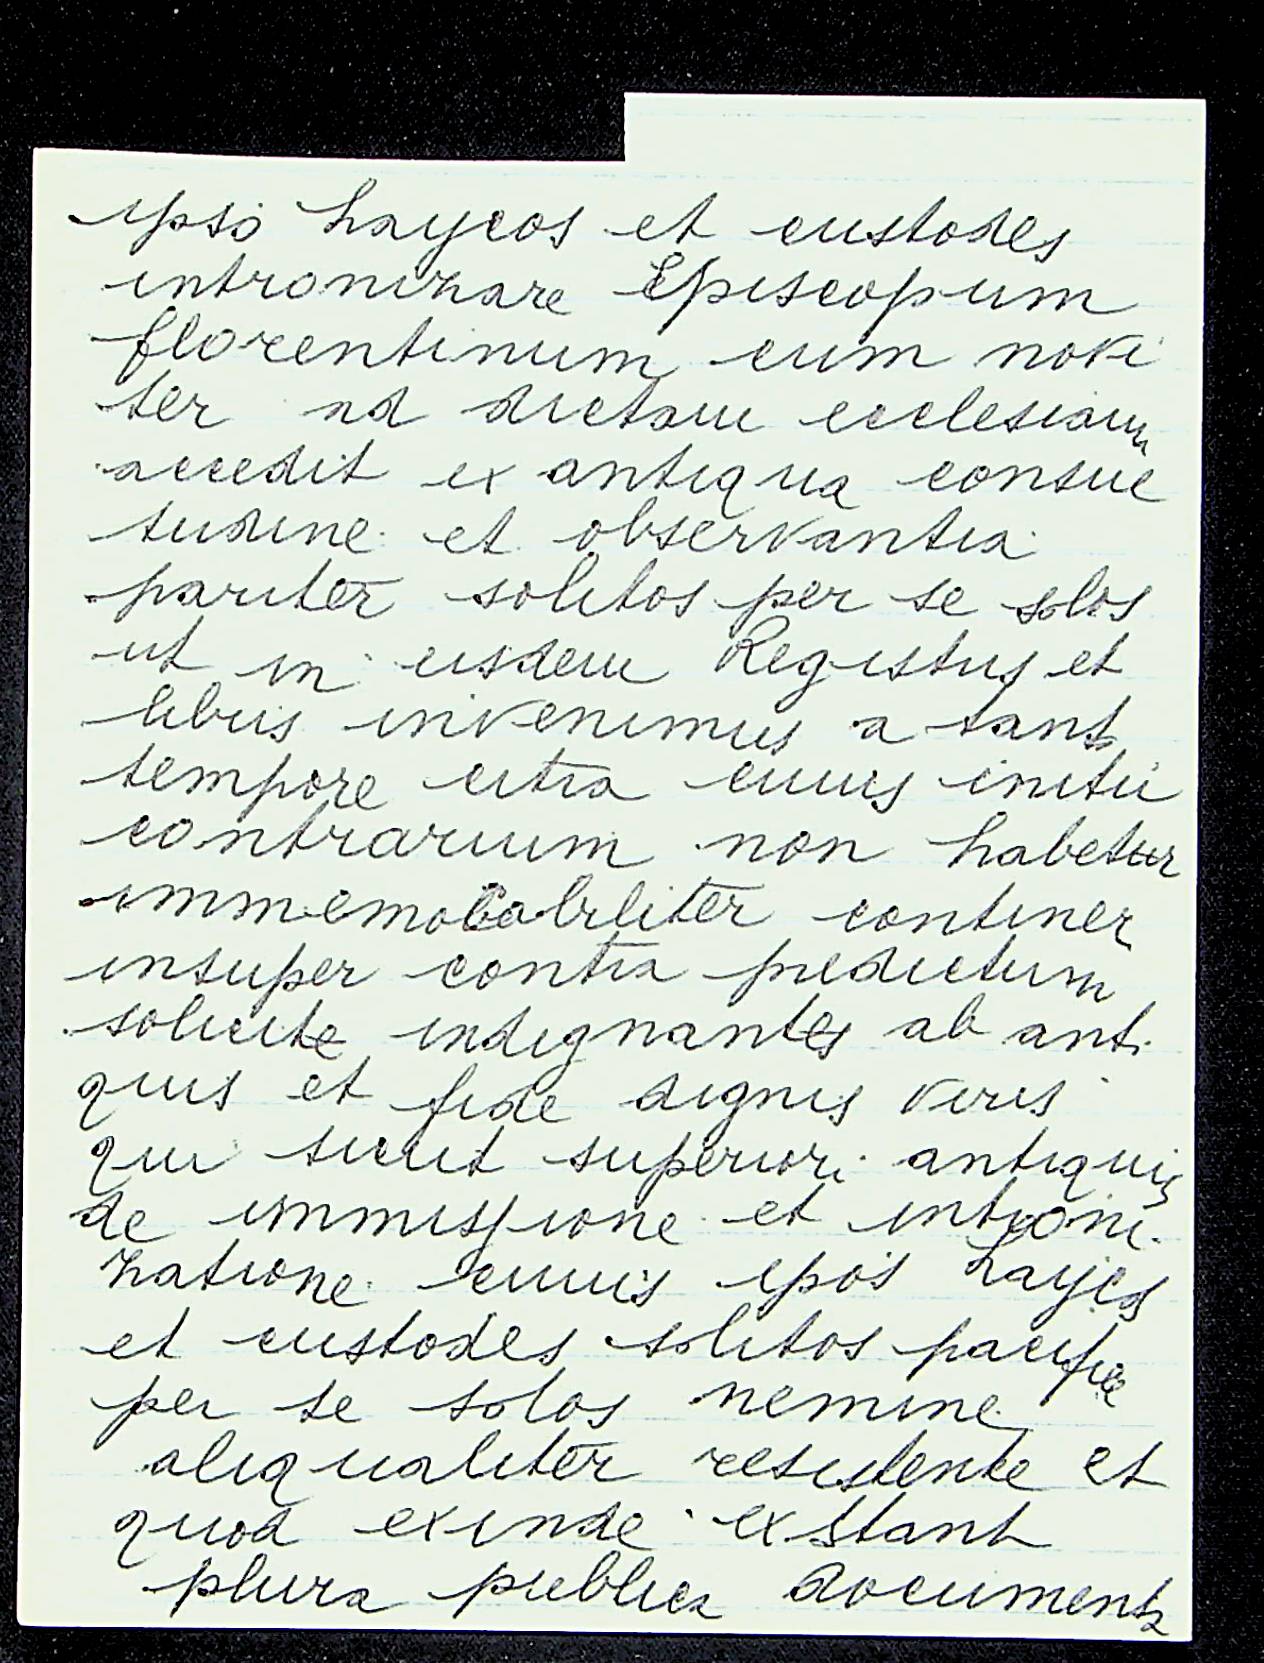 ipsi Laycos et custodes
intronizare Episcopum
florentinum cum novi
ter ad dictam ecclesiam
accedit ex antiqua consue
tudine et observantia
pariter solitos per se solos
ut in eisdem Registris et
libris invenimus a tant
tempore citra cuius initii
contrarium non habetur
contineri
insuper contra predictum
solicite indignantes ab anti
quis et fide dignis viris
qui sicut superiori antiquis
de immissione et introni-
zatione cuius ipos Laycos
et custodes solitos pacifice
per se solos nemine
aliqualiter resistente et
quod exinde exstant
plura publica documenta